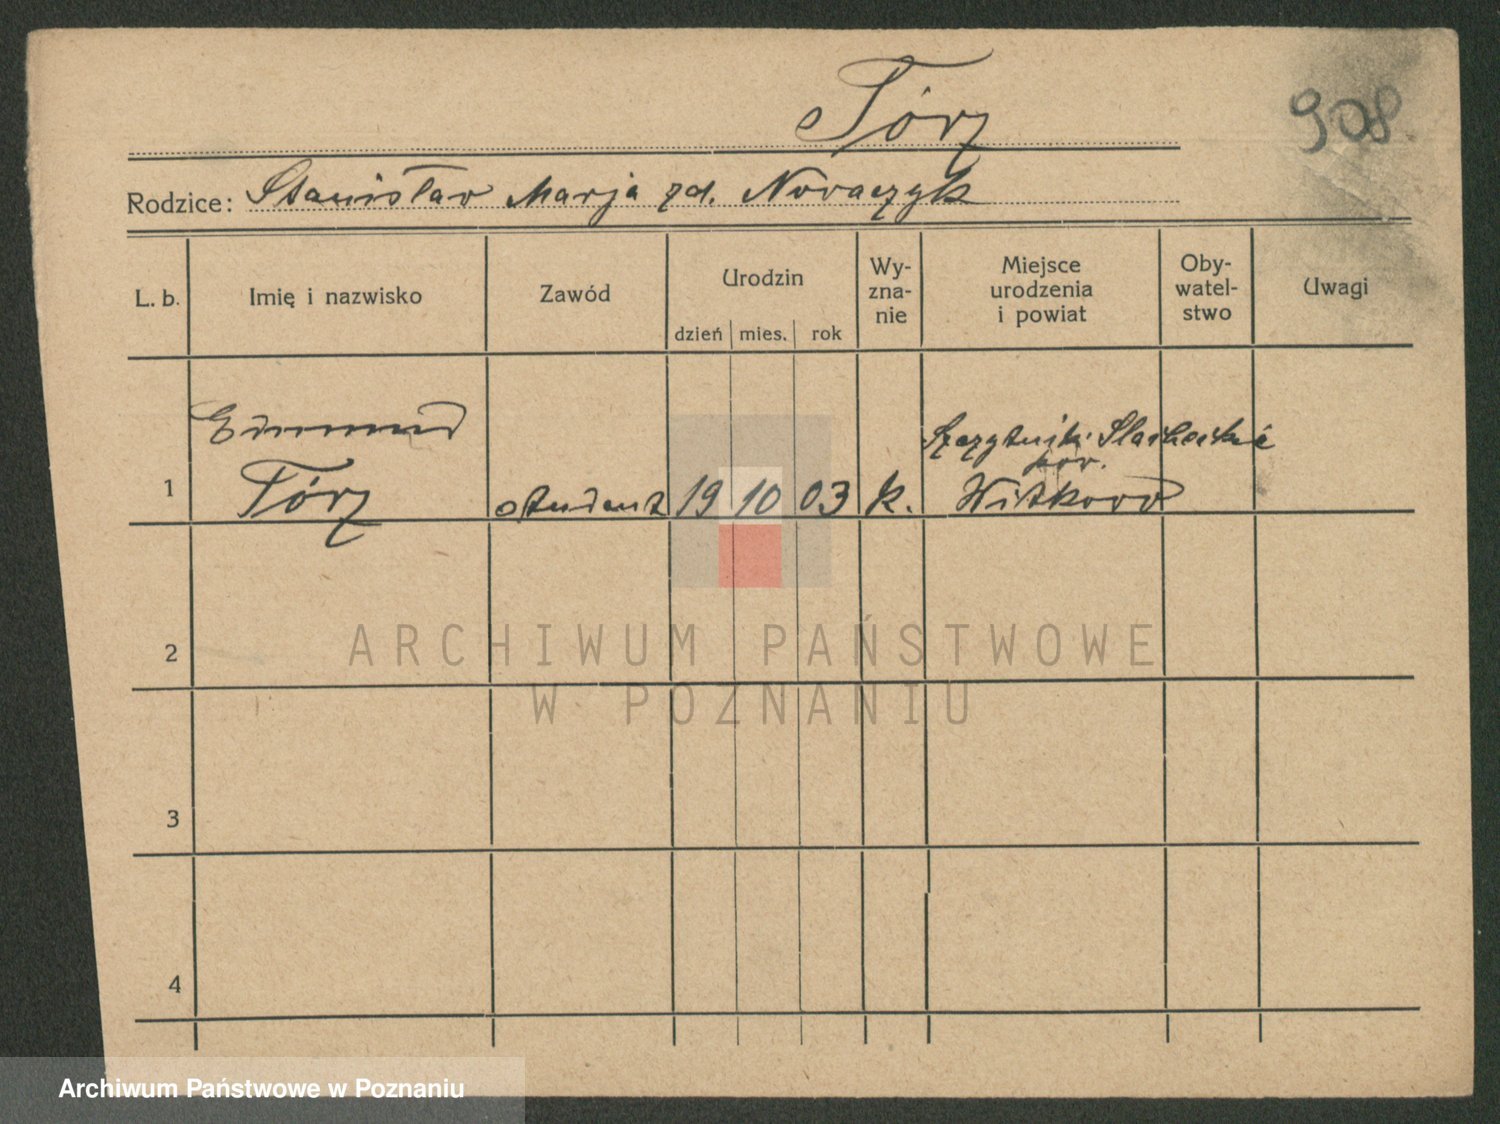 Tórz
908.
Rodzice: Stanisław Marja zd. Nowaczyk
L. b. Imię i nazwisko Zawód Urodzin Wy- Miejsce Oby- Uwagi
zna- urodzenia watel-
nie i powiat stwo
dzień mies. rok
Edmund Szczytniki
pow.
1 Tórz student 19 10 03 k. Witkowo
2
ARCHIWUM PAŃSTWOWE
W POZNANIU
3
4
Archiwum Państwowe w Poznaniu